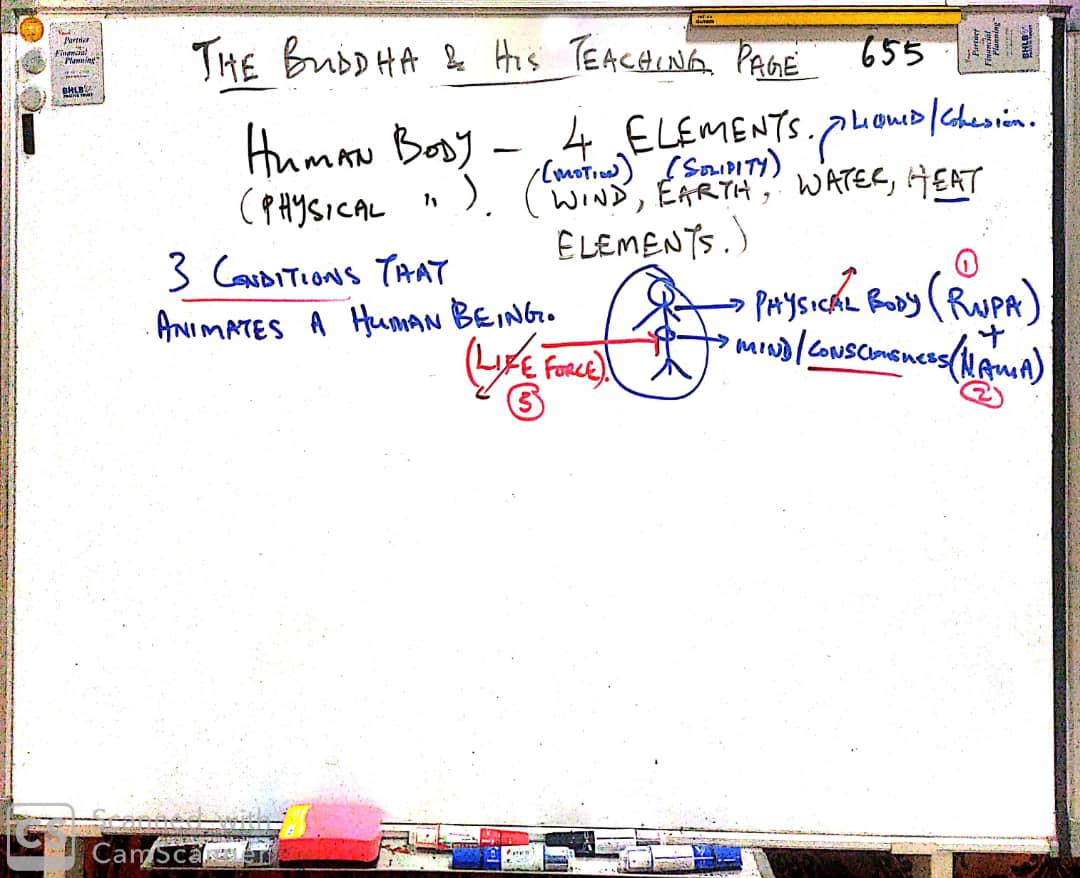 THE BUDDHA & HIS TEACHING PAGE 655
HUMAN BODY - 4 ELEMENTS. LIQUID/Cohesion.
(MOTION) (SOLIDITY)
(PHYSICAL "). (WIND, EARTH, WATER, HEAT
ELEMENTS.)
3 CONDITIONS THAT
ANIMATES A HUMAN BEING.
①
PHYSICAL BODY (RUPA)
+
MIND/CONSCIOUSNESS (NAMA)
②
(LIFE FORCE).
③
Partner
in
Financial
Planning
BHLB
Partner
in
Financial
Planning
BHLB
CS
Scanned with
CamScanner